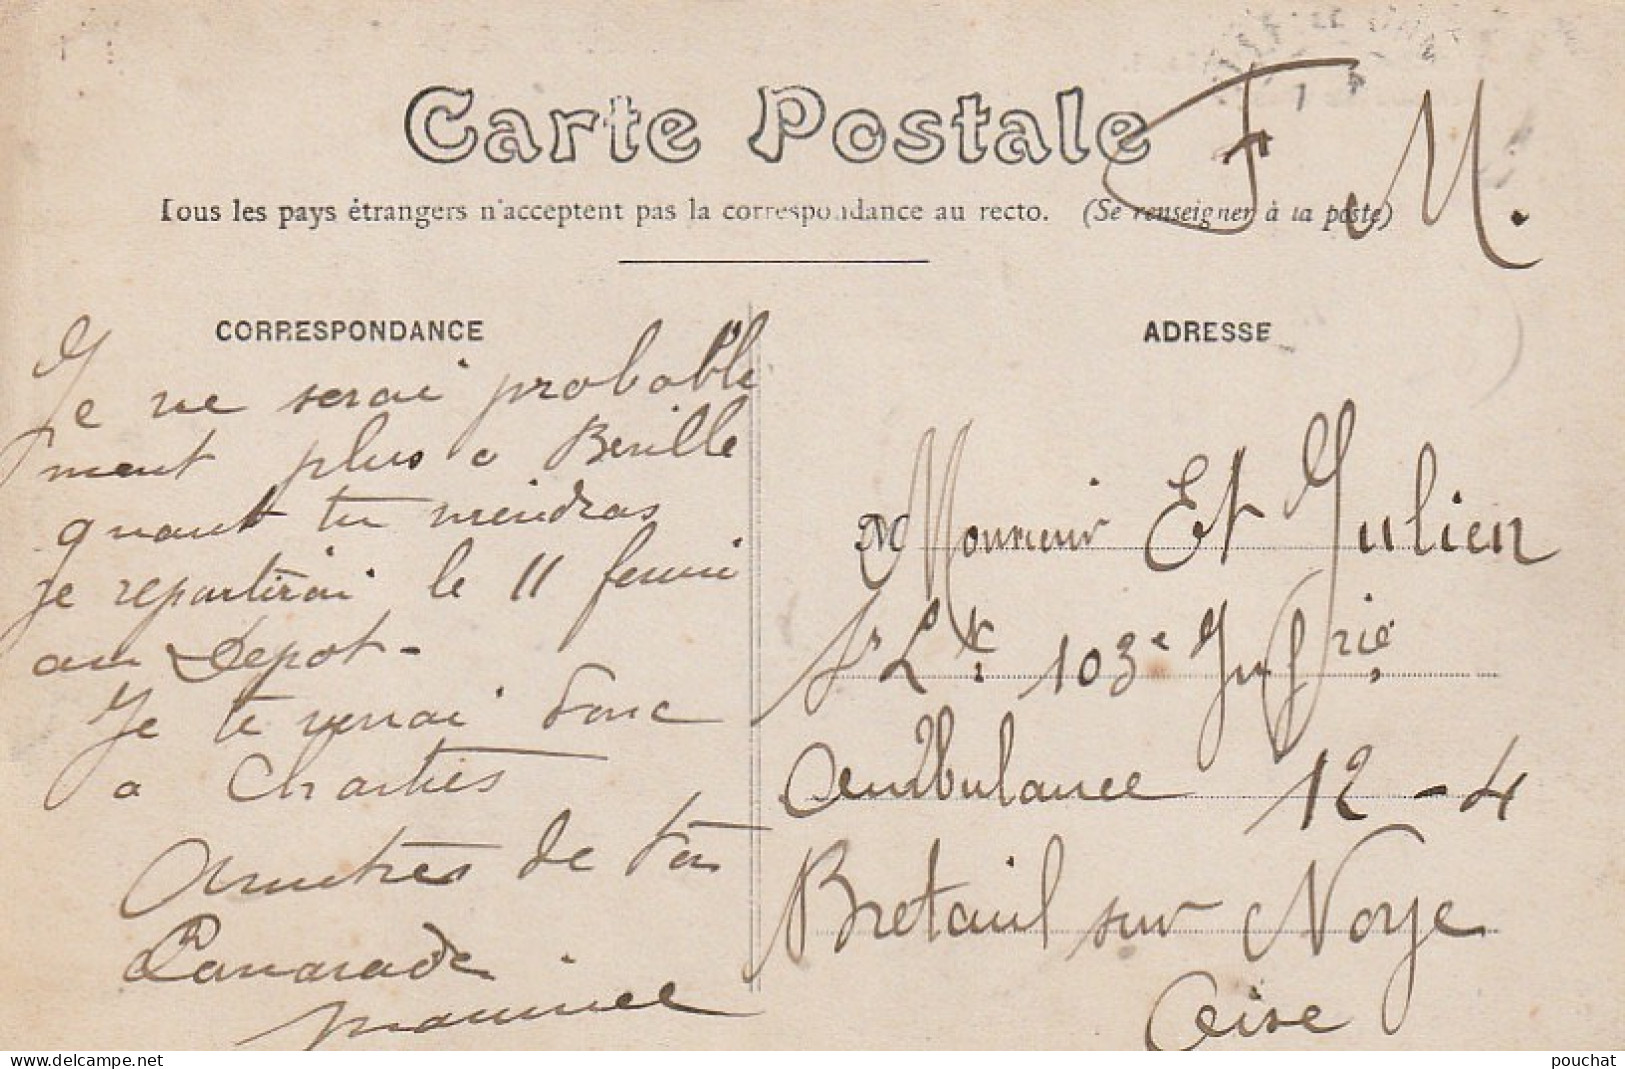 Carte Postale
F. M.
Tous les pays étrangers n'acceptent pas la correspondance au recto. (Se renseigner à la poste)
CORRESPONDANCE
Je ne serai probable
ment plus a Berville
quant tu viendras
je repartirai le 11 fevrié
au Depot -
Je te verrai donc
a Chartres
Amitiés de ton
Camarade.
Maurice
ADRESSE
M Monsieur Et Julien
S. Lt 103e Infrie
Ambulance 12-4
Bretauil sur Noye
Oise
pouchat